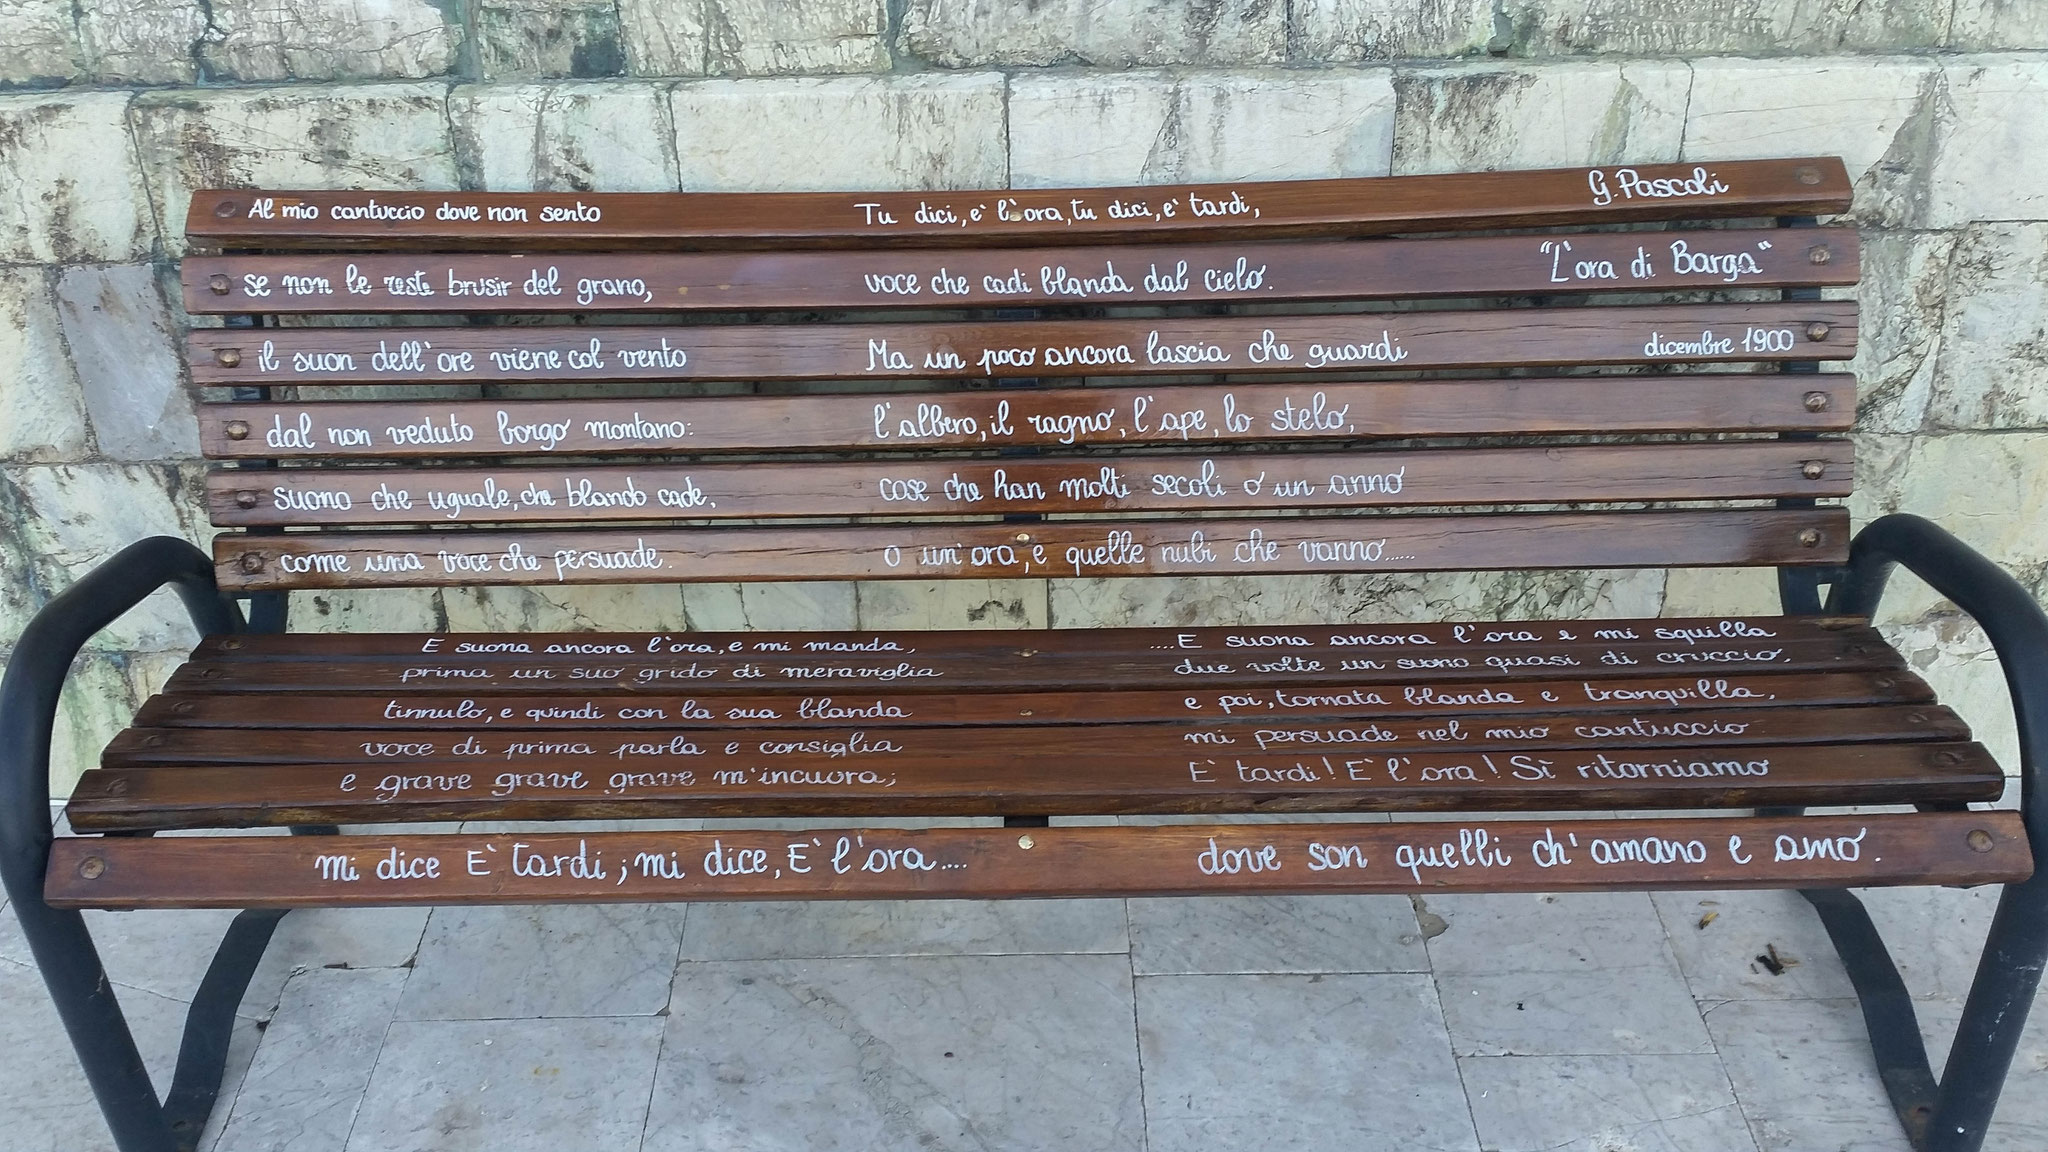 Al mio cantuccio dove non sento
se non le reste brusir del grano,
il suon dell'ore viene col vento
dal non veduto borgo montano:
suono che uguale, che blando cade,
come una voce che persuade.
Tu dici, e' l'ora, tu dici, e' tardi,
voce che cadi blanda dal cielo.
Ma un poco ancora lascia che guardi
l'albero, il ragno, l'ape, lo stelo,
cose che han molti secoli o un anno
o un'ora, e quelle nubi che vanno......
G. Pascoli
"L'ora di Barga"
dicembre 1900
E suona ancora l'ora, e mi manda,
prima un suo grido di meraviglia
tinnulo, e quindi con la sua blanda
voce di prima parla e consiglia
e grave grave grave m'incuora;
mi dice E' tardi; mi dice, E' l'ora....
....E suona ancora l'ora e mi squilla
due volte un suono quasi di cruccio,
e poi, tornata blanda e tranquilla,
mi persuade nel mio cantuccio
E' tardi! E' l'ora! Sì ritorniamo
dove son quelli ch'amano e amo.